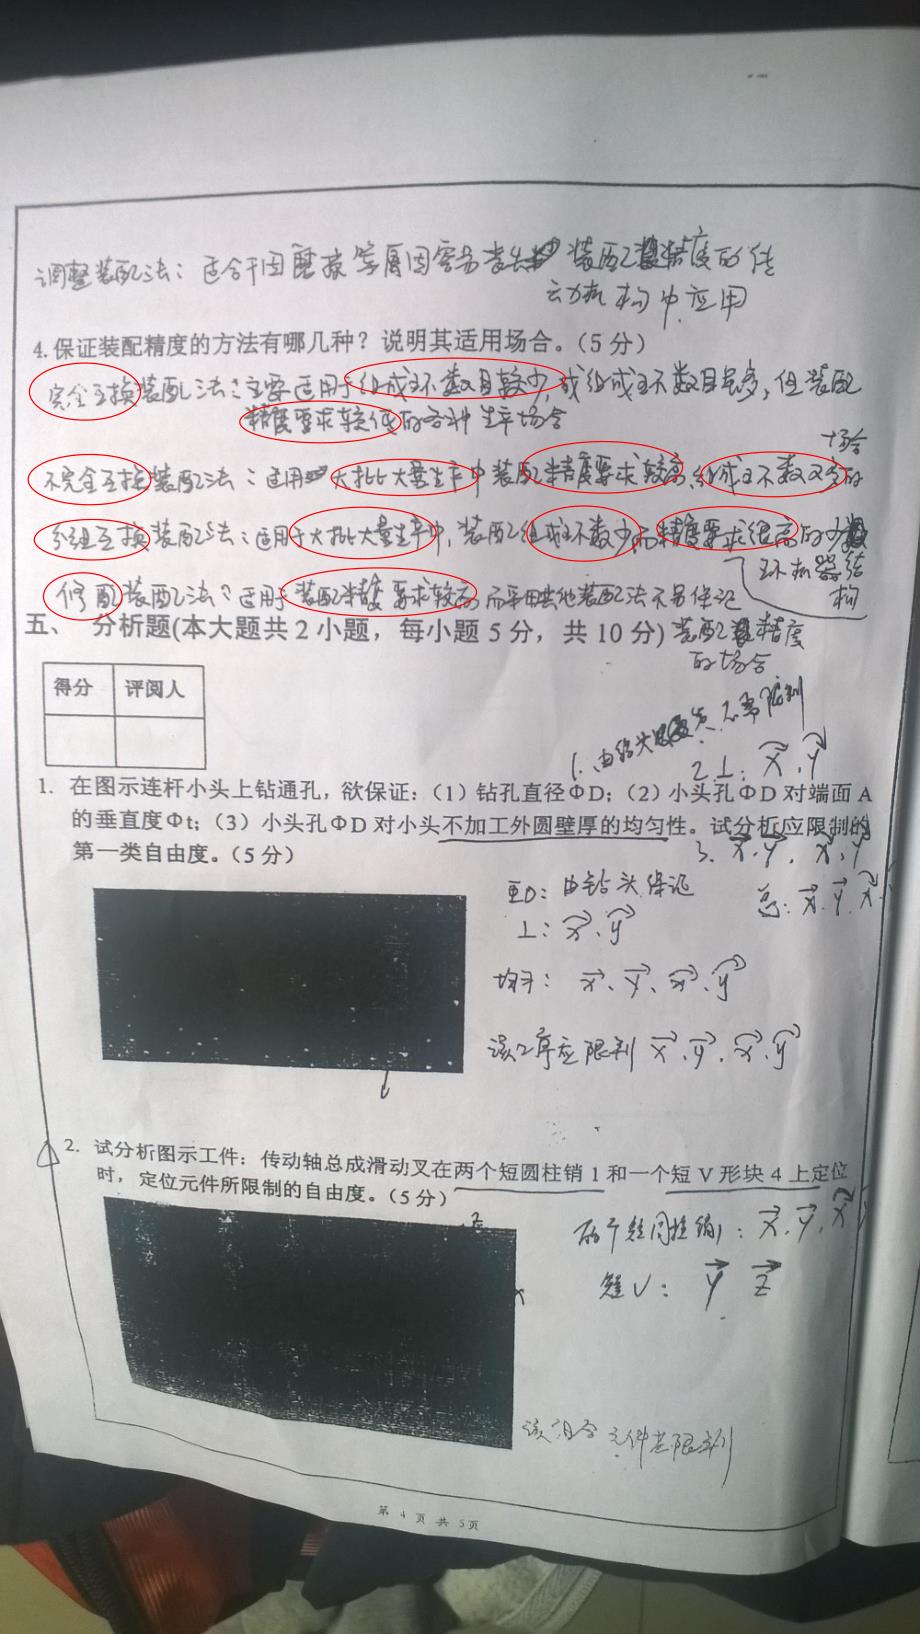 调整装配法：适合于因磨损等原因容易丧失装配精度的传
动机构中应用
4.保证装配精度的方法有哪几种？说明其适用场合。（5分）
完全互换装配法：主要适用于组成环数目较少，或组成环数目虽多，但装配
精度要求较低的各种生产场合
不完全互换装配法：适用于大批大量生产中装配精度要求较高，组成环数又多的
场合
分组互换装配法：适用于大批大量生产中，装配组成环数少而精度要求很高的少
环机器结
构
修配装配法：适用于装配精度要求较高而采用其他装配法不易保证
装配精度
的场合
五、 分析题(本大题共2小题，每小题5分，共10分)
得分 评阅人
1. 在图示连杆小头上钻通孔，欲保证：（1）钻孔直径ΦD；（2）小头孔ΦD对端面A
的垂直度Φt；（3）小头孔ΦD对小头不加工外圆壁厚的均匀性。试分析应限制的
第一类自由度。（5分）
2. ⊥：x、y
3、x、y、x、y
总：x、y、x、
由钻头保证
⊥：x、y
均匀：x、y、x、y
该工序应限制 x、y、x、y
2. 试分析图示工件：传动轴总成滑动叉在两个短圆柱销1和一个短V形块4上定位
时，定位元件所限制的自由度。（5分）
两个短圆柱销1：x、y、x
短V：y z
该组合元件共限制
第 4 页 共 5页